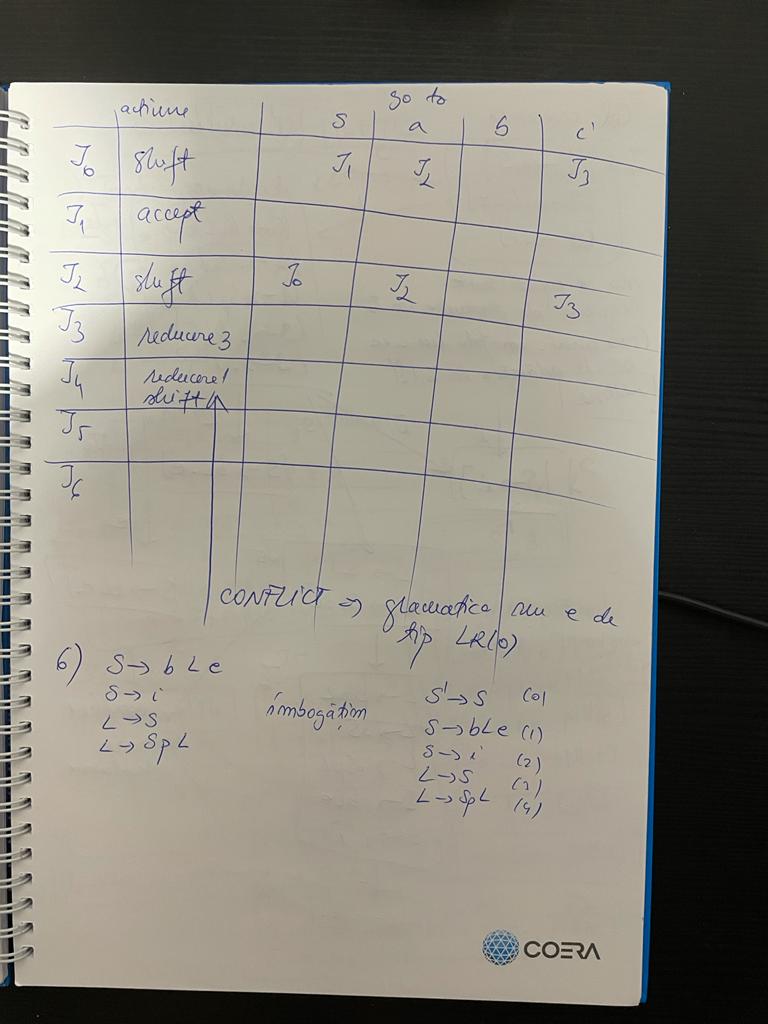 acțiune go to
S a b c
I0 shift I1 I2 I3
I1 accept
I2 shift I0 I2 I3
I3 reducere3
I4 reducere1
shift
I5
I6
CONFLICT => gramatica nu e de
tip LR(0)
6) S → b L e
S → i
L → S
L → S p L
îmbogățim
S' → S (0)
S → bLe (1)
S → i (2)
L → S (3)
L → SpL (4)
COERA